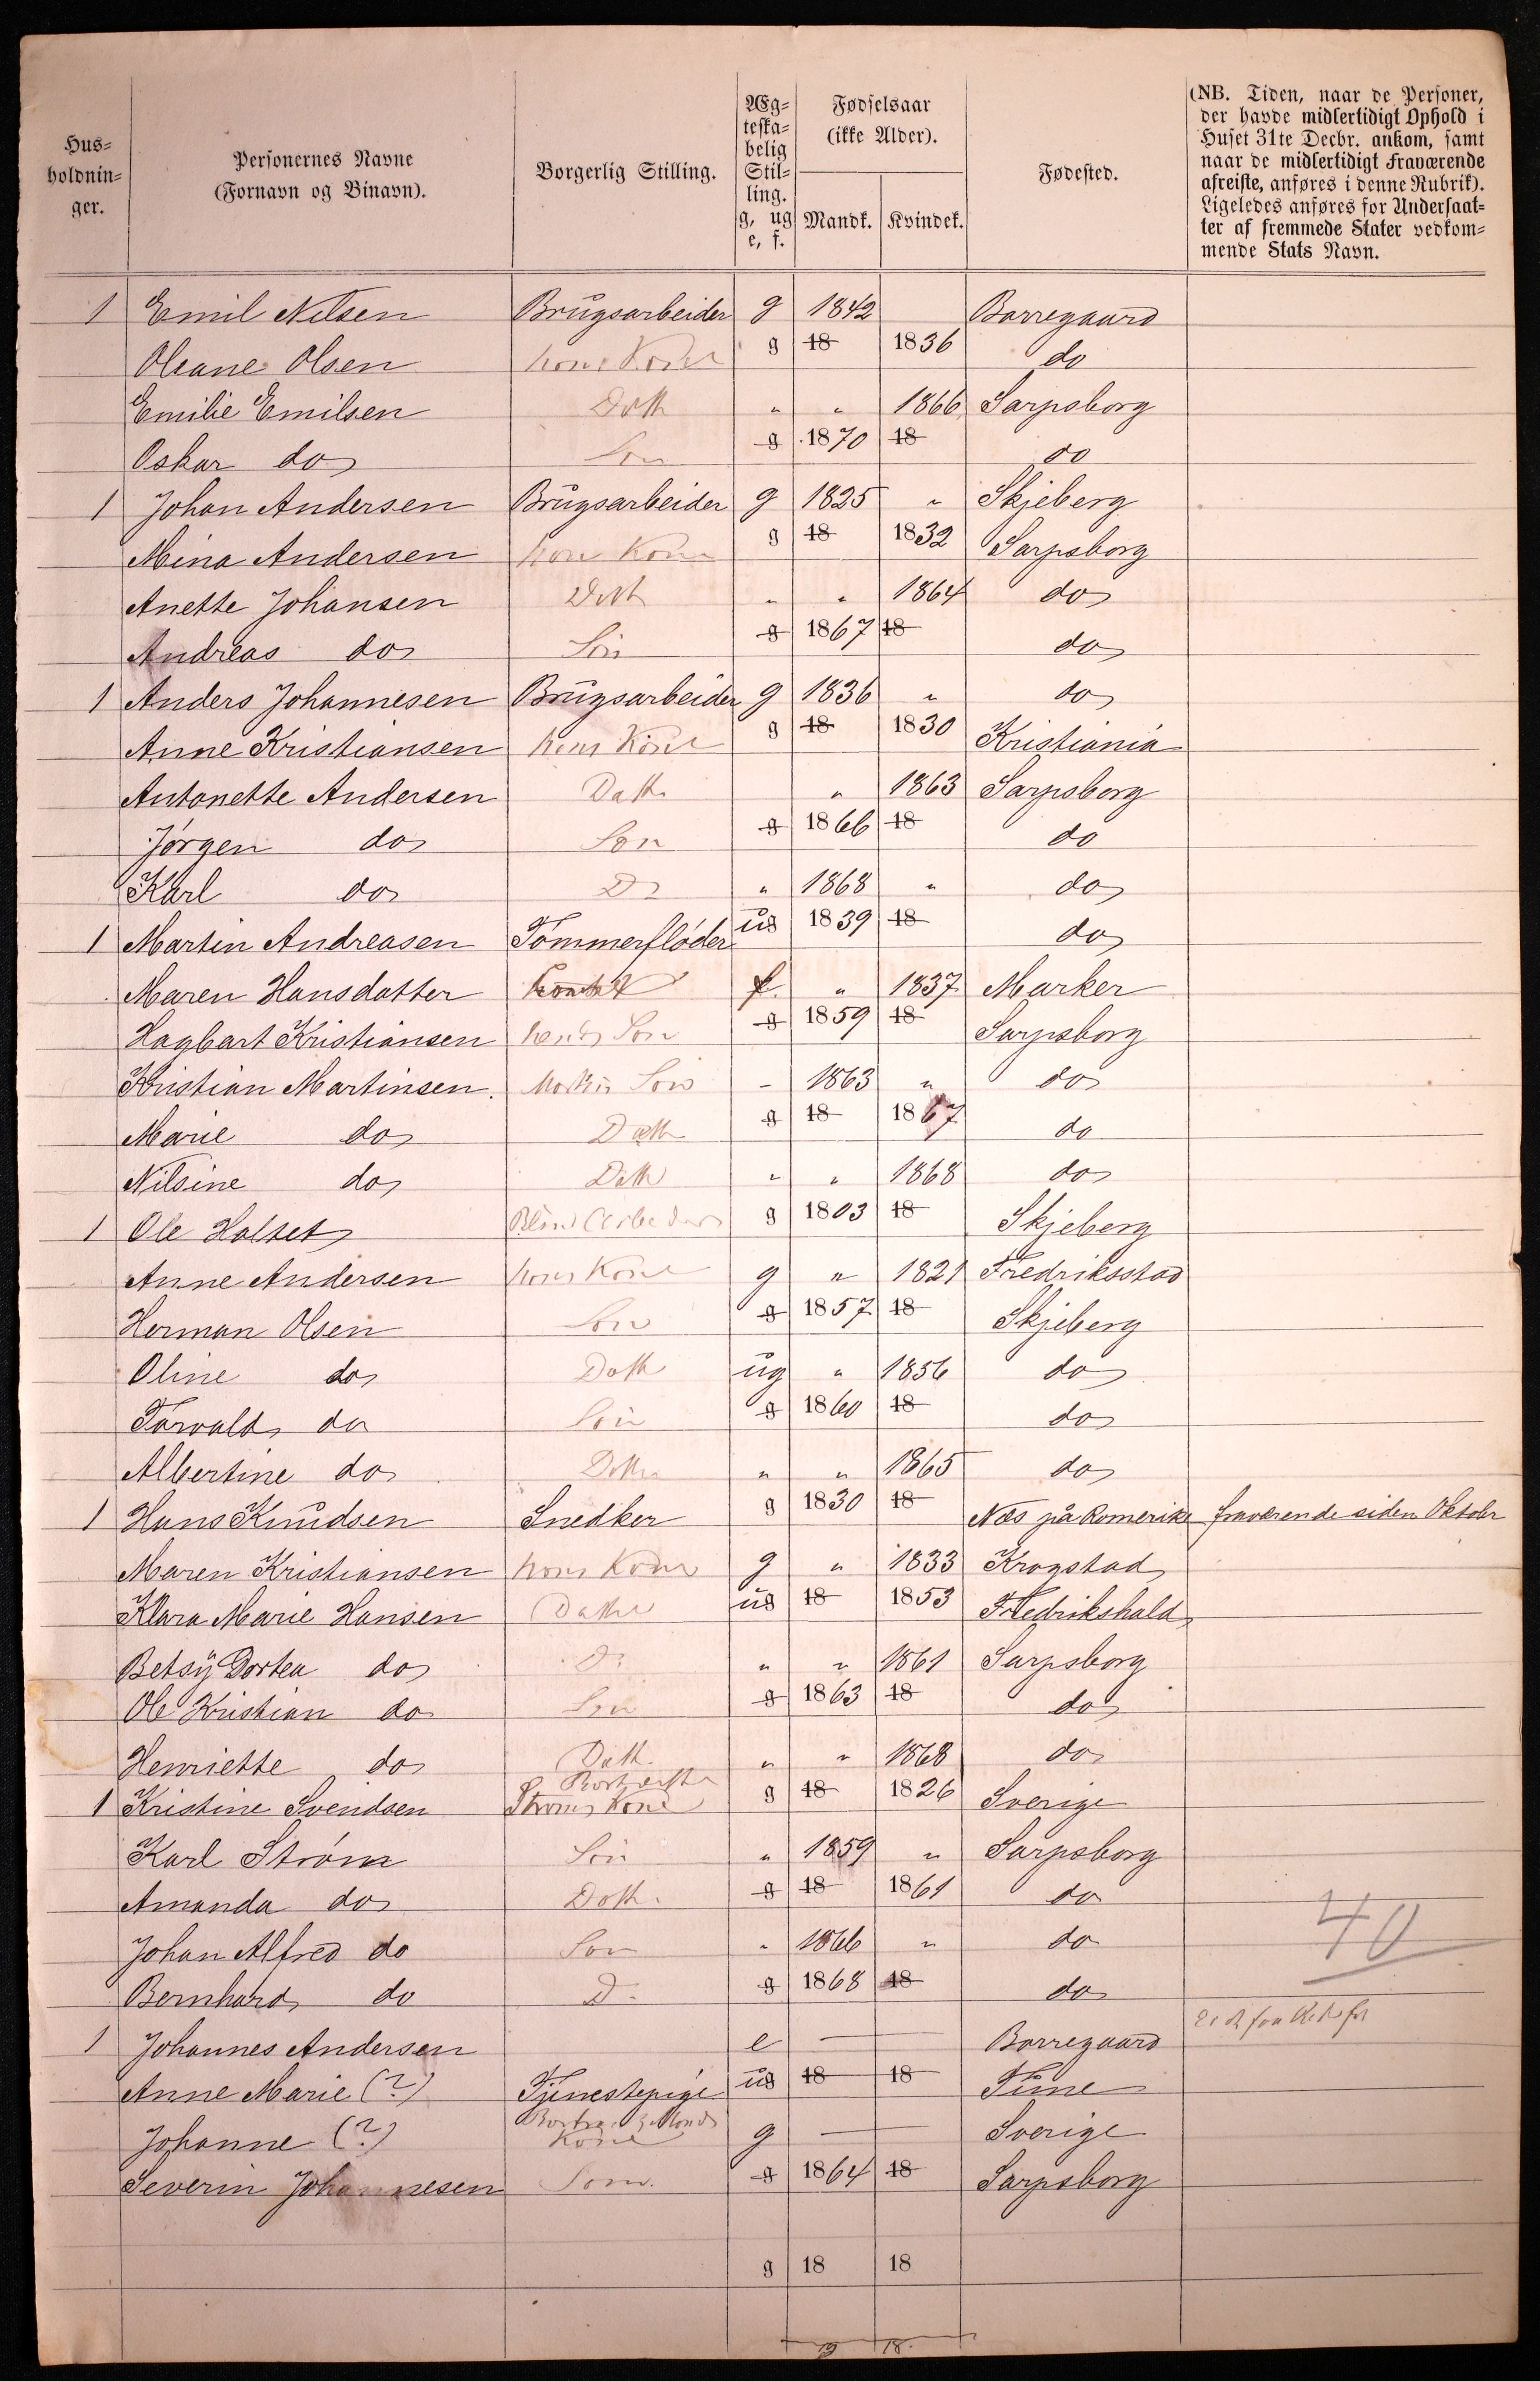 Hus-
holdnin-
ger.
Personernes Navne
(Fornavn og Binavn).
Borgerlig Stilling.
Æg-
teska-
belig
Stil-
ling.
g, ug
e, f.
Fødselsaar
(ikke Alder).
Mandk. Kvindek.
Fødested.
(NB. Tiden, naar de Personer,
der havde midlertidigt Ophold i
Huset 31te Decbr. ankom, samt
naar de midlertidigt Fraværende
afreiste, anføres i denne Rubrik).
Ligeledes anføres for Undersaat-
ter af fremmede Stater vedkom-
mende Stats Navn.
1 Emil Nilsen Brugsarbeider g 1842 Borregaard
Oleane Olsen hans Kone g 18 1836 do
Emilie Emilsen Datt " " 1866 Sarpsborg
Oskar do Søn g 1870 18 do
1 Johan Andersen Brugsarbeider g 1825 " Skjeberg
Mina Andersen hans Kone g 18 1832 Sarpsborg
Anette Johansen Datt " " 1864 do
Andreas do Søn g 1867 18 do
1 Anders Johannesen Brugsarbeider g 1836 " do
Anne Kristiansen hans Kone g 18 1830 Kristiania
Antonette Andersen Datt " 1863 Sarpsborg
Jørgen do Søn g 1866 18 do
Karl do Do " 1868 " do
1 Martin Andreasen Tømmerfløder ug 1839 18 do
Maren Hansdatter f. " 1837 Marker
Hagbart Kristiansen hendes Søn g 1859 18 Sarpsborg
Kristian Martinsen. Martins Søn - 1863 " do
Marie do Datt g 18 1867 do
Nilsine do Datt " " 1868 do
1 Ole Halset g 1803 18 Skjeberg
Anne Andersen hans Kone g " 1821 Fredriksstad
Herman Olsen Søn g 1857 18 Skjeberg
Oline do Datt ug " 1856 do
Torvald do Søn g 1860 18 do
Albertine do Datter " " 1865 do
1 Hans Knudsen Snedker g 1830 18 Næs på Romerike fraværende siden Oktobr
Maren Kristiansen hans Kone g " 1833 Krogstad
Klara Marie Hansen Datter ug 18 1853 Fredrikshald
Betsy Dortea do Do " " 1861 Sarpsborg
Ole Kristian do Søn g 1863 18 do
Henriette do Datt. " " 1868 do
1 Kristine Svendsen Bortreiste Strøms Kone g 18 1826 Sverige
Karl Strøm Søn " 1859 " Sarpsborg
Amanda do Datt. g 18 1861 do
Johan Alfred do Søn " 1866 " do
Bernhard do Do g 1868 18 do
40
1 Johannes Andersen e — — Borregaard
Anne Marie (?) Tjenestepige ug 18 18 Tune
Johanne (?) Kone g — — Sverige
Severin Johannesen Søn. g 1864 18 Sarpsborg
g 18 18
19 18.